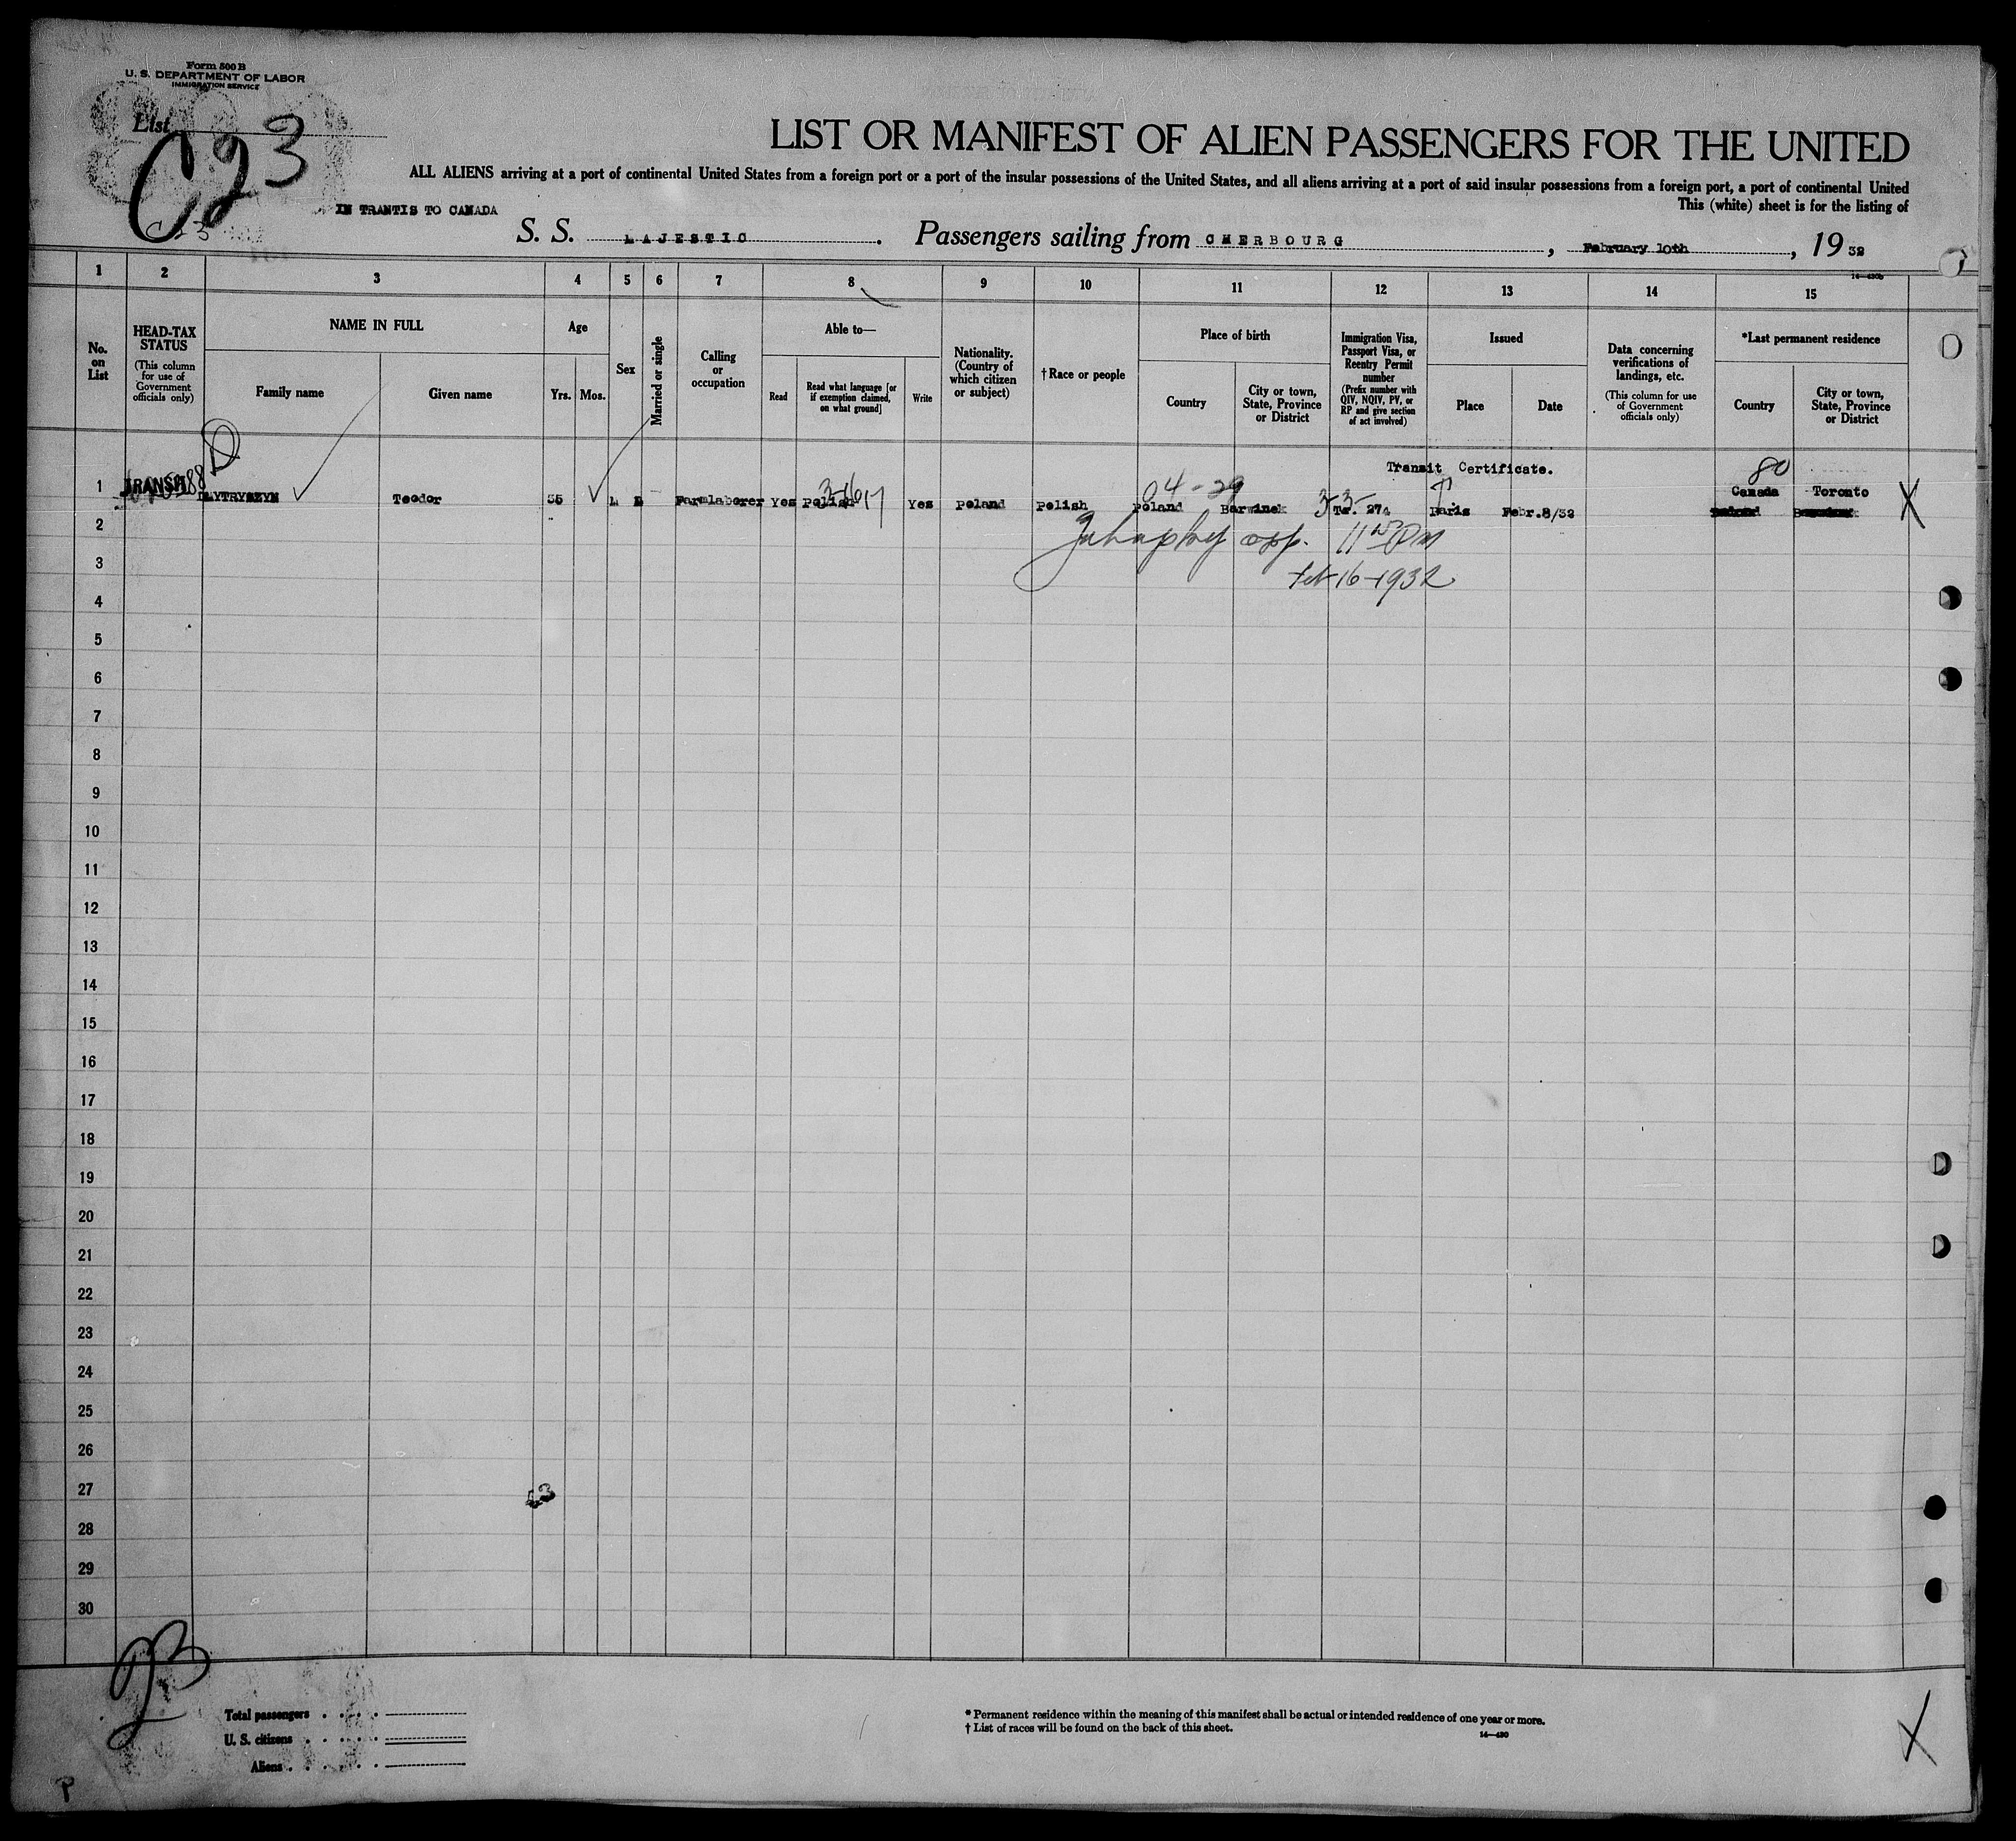 Form 500 B
U. S. DEPARTMENT OF LABOR
IMMIGRATION SERVICE
List
C93
LIST OR MANIFEST OF ALIEN PASSENGERS FOR THE UNITED
ALL ALIENS arriving at a port of continental United States from a foreign port or a port of the insular possessions of the United States, and all aliens arriving at a port of said insular possessions from a foreign port, a port of continental United
This (white) sheet is for the listing of
IN TRANTIS TO CANADA
S. S. MAJESTIC. Passengers sailing from CHERBOURG, February 10th, 1932
14—430b
1 2 3 4 5 6 7 8 9 10 11 12 13 14 15
No. on List
HEAD-TAX STATUS
(This column for use of Government officials only)
NAME IN FULL
Family name
Given name
Age
Yrs.
Mos.
Sex
Married or single
Calling or occupation
Able to—
Read
Read what language [or if exemption claimed, on what ground]
Write
Nationality. (Country of which citizen or subject)
†Race or people
Place of birth
Country
City or town, State, Province or District
Immigration Visa, Passport Visa, or Reentry Permit number
(Prefix number with QIV, NQIV, PV, or RP and give section of act involved)
Issued
Place
Date
Data concerning verifications of landings, etc.
(This column for use of Government officials only)
*Last permanent residence
Country
City or town, State, Province or District
Transit Certificate.
80
04-29
1 TRANSIT DMYTRYSZYN Teodor 35 M M Farmlaborer Yes Polish Yes Poland Polish Poland Barwinek Tr. 274 Paris Febr.8/32 Canada Toronto X
2
app. 11 PM
3
Feb 16-1932
4
5
6
7
8
9
10
11
12
13
14
15
16
17
18
19
20
21
22
23
24
25
26
27
28
29
30
93
Total passengers
U. S. citizens
Aliens
* Permanent residence within the meaning of this manifest shall be actual or intended residence of one year or more.
† List of races will be found on the back of this sheet.
14—430
X
P